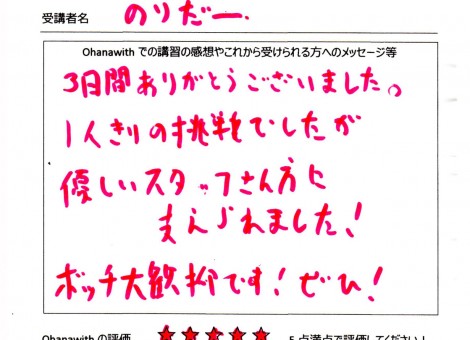 受講者名 のりだー.
Ohanawith での講習の感想やこれから受けられる方へのメッセージ等
3日間ありがとうございました。
1人きりの挑戦でしたが
優しいスタッフさん方に
支えられました!
ボッチ大歓迎です!ぜひ!
Ohanawith の評価 ★★★★★ 5点満点で評価してください!